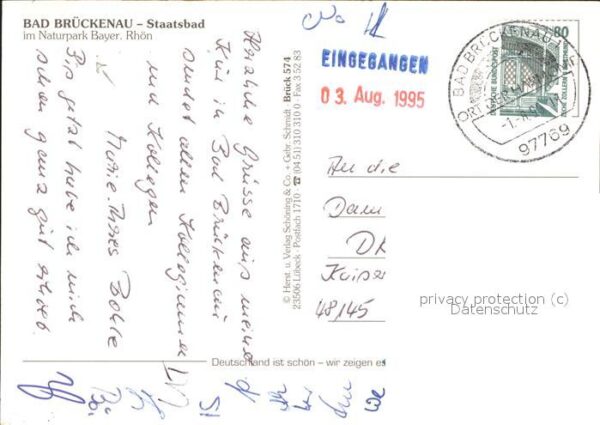 BAD BRÜCKENAU – Staatsbad
im Naturpark Bayer. Rhön
Herzliche Grüsse aus meiner
Kur in Bad Brückenau
sendet allen Kolleginnen
und Kollegen
Marie-Theres Bohle
Bis jetzt habe ich mich
schon ganz gut erholt.
© Herst. u. Verlag Schöning & Co. + Gebr. Schmidt · Brück 574
23506 Lübeck · Postfach 1710 · ☎ (04 51) 310 310 · Fax 3 52 83
EINGEGANGEN
03. Aug. 1995
80
DEUTSCHE BUNDESPOST
BAD BRÜCKENAU
97769
An die
Dam
DA
Kaiser
48145
privacy protection (c)
Datenschutz
Deutschland ist schön – wir zeigen es